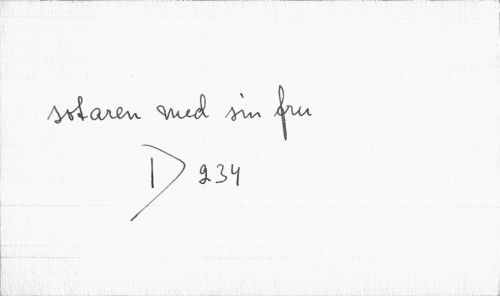 sotaren med sin fru
D 234